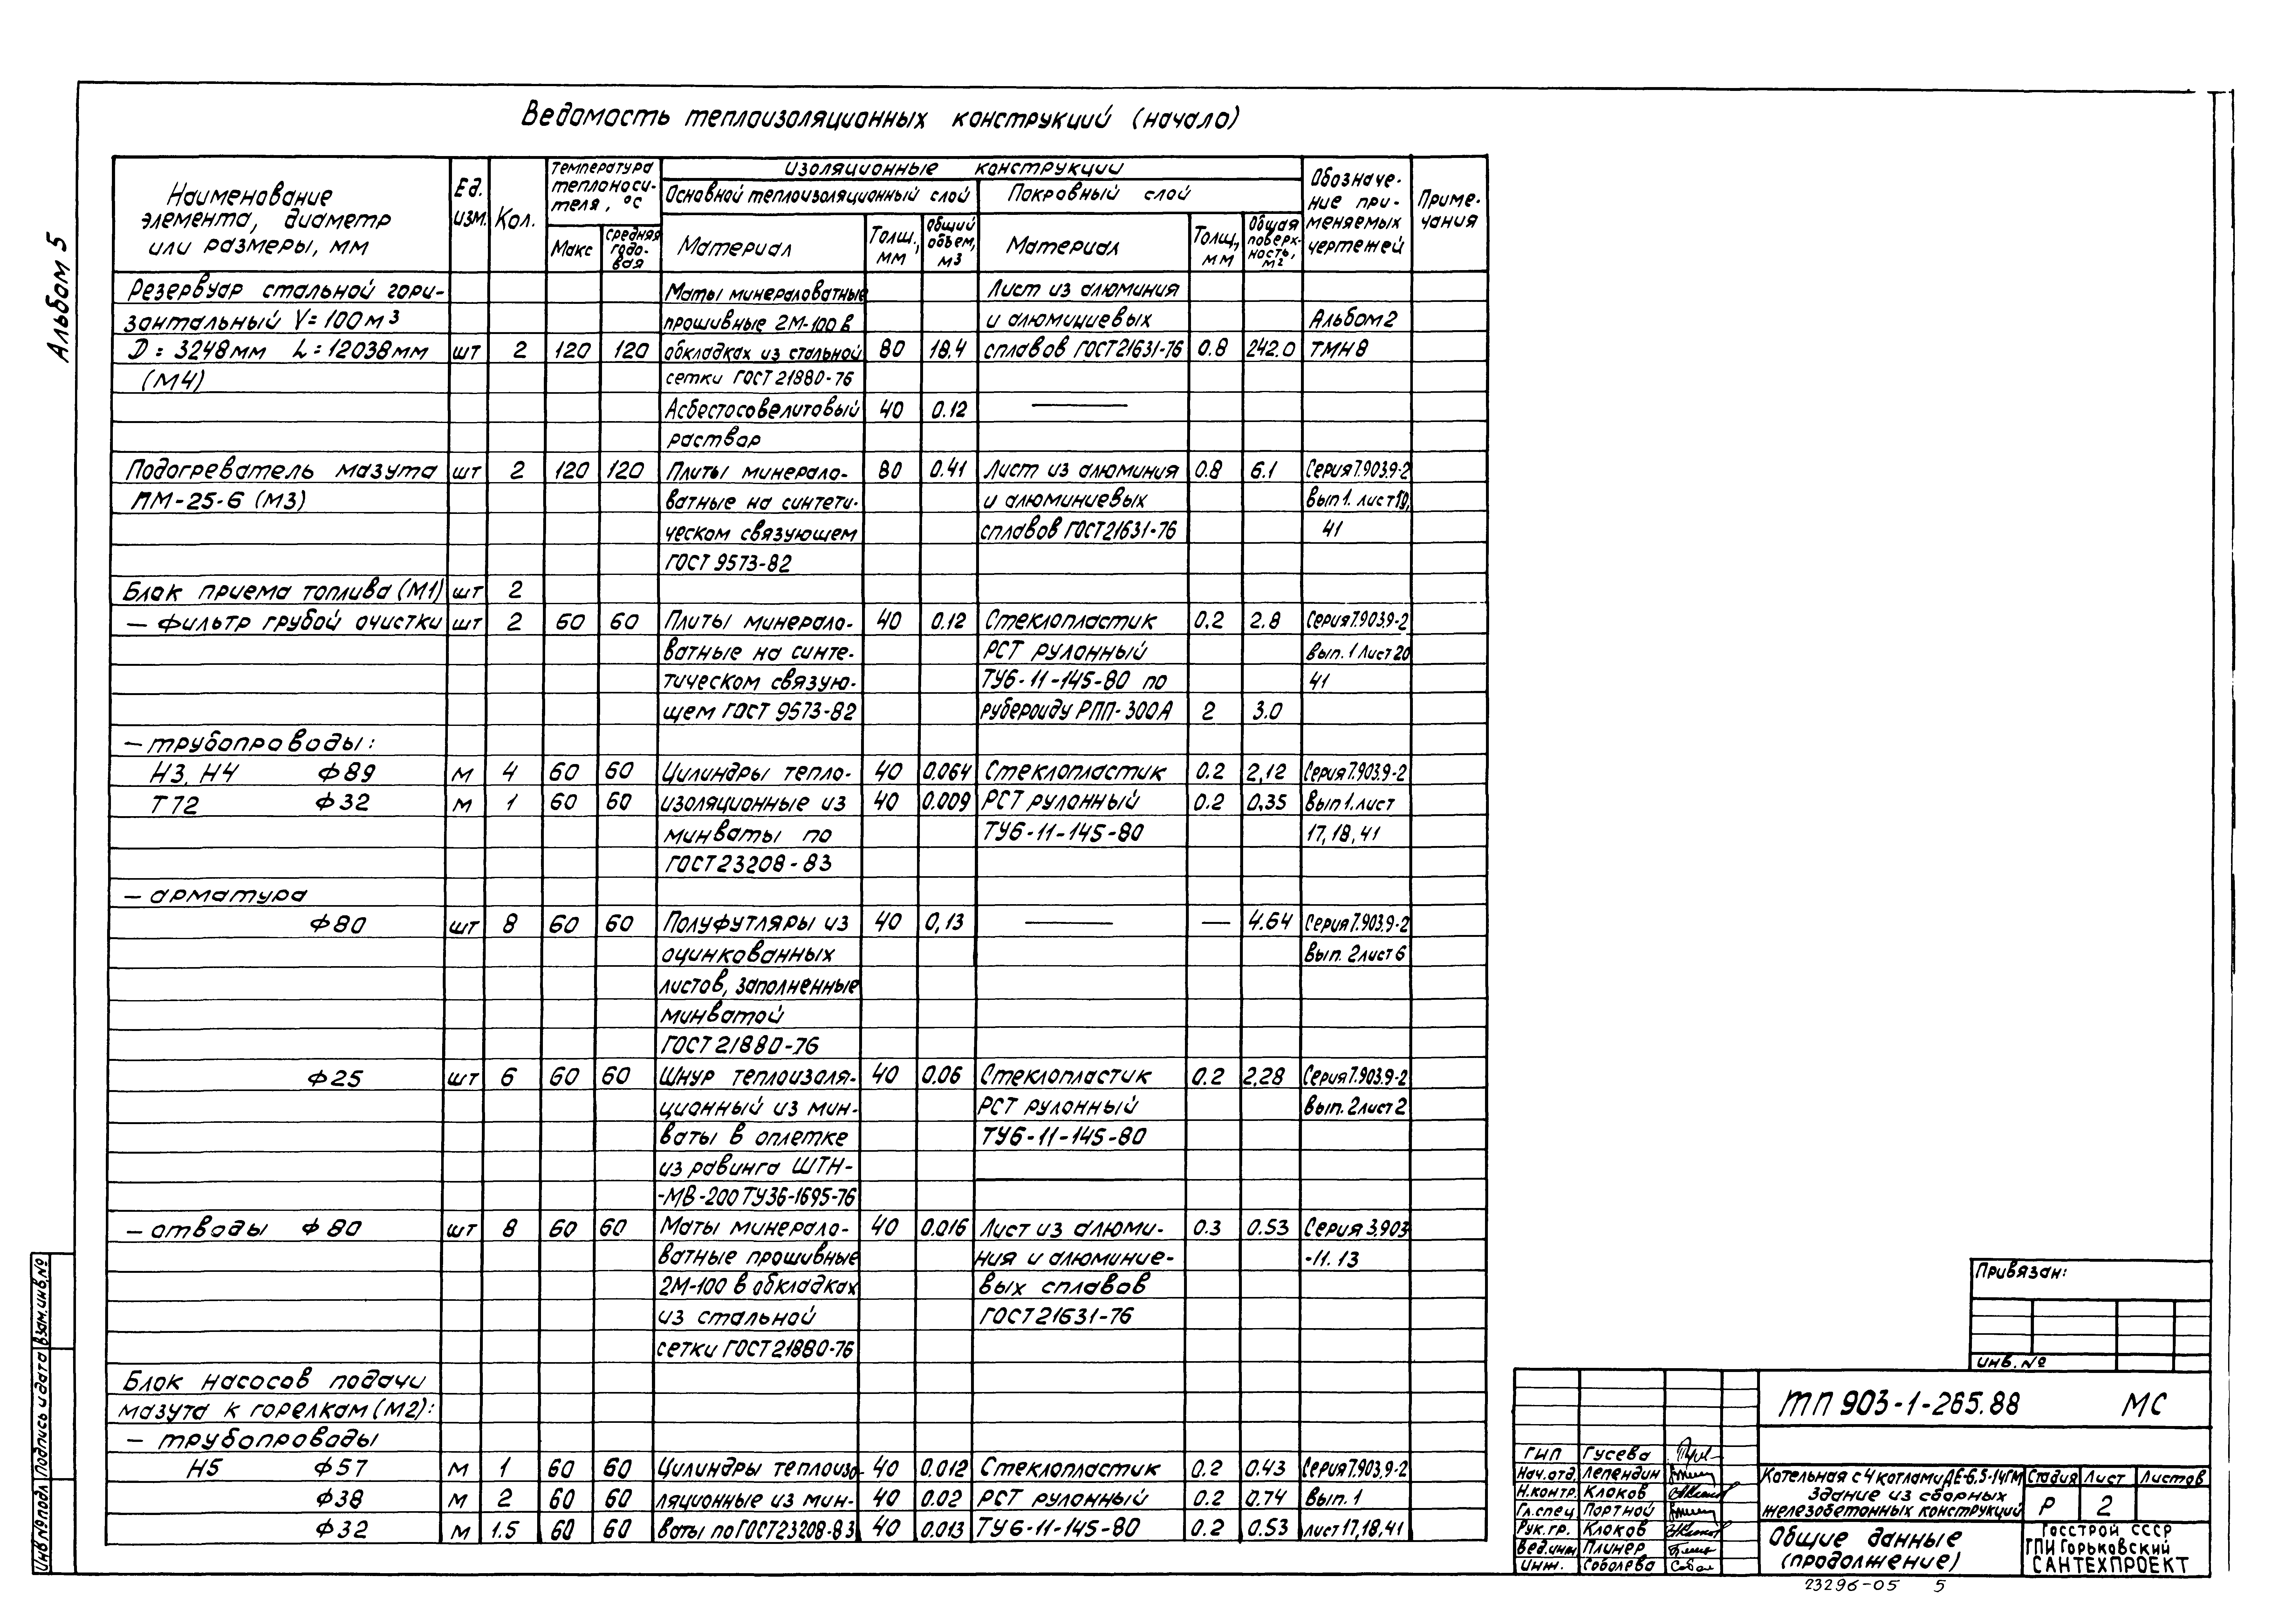 Альбом 5
Ведомость теплоизоляционных конструкций (начало)
Наименование элемента, диаметр или размеры, мм
Ед. изм.
Кол.
Температура теплоносителя, °С
Макс
Средняя годовая
Изоляционные конструкции
Основной теплоизоляционный слой
Покровный слой
Материал
Толщ., мм
Общий объем, м3
Материал
Толщ., мм
Общая поверхность, м2
Обозначение применяемых чертежей
Примечания
Резервуар стальной гори- Маты минераловатные Лист из алюминия
зонтальный V=100м3 прошивные 2М-100 в и алюминиевых Альбом 2
D=3248мм L=12038мм шт 2 120 120 обкладках из стальной 80 18.4 сплавов ГОСТ21631-76 0.8 242.0 ТМН8
(М4) сетки ГОСТ 21880-76
Асбестосовелитовый 40 0.12 —
раствор
Подогреватель мазута шт 2 120 120 Плиты минерало- 80 0.41 Лист из алюминия 0.8 6.1 Серия 7.903.9-2
ПМ-25-6 (М3) ватные на синтети- и алюминиевых вып 1. лист 19,
ческом связующем сплавов ГОСТ21631-76 41
ГОСТ 9573-82
Блок приема топлива (М1) шт 2
— Фильтр грубой очистки шт 2 60 60 Плиты минерало- 40 0.12 Стеклопластик 0.2 2.8 Серия 7.903.9-2
ватные на синте- РСТ рулонный вып. 1 Лист 20
тическом связую- ТУ6-11-145-80 по 41
щем ГОСТ 9573-82 рубероиду РПП-300А 2 3.0
— трубопроводы:
Н3, Н4 Ф89 м 4 60 60 Цилиндры тепло- 40 0.064 Стеклопластик 0.2 2,12 Серия 7.903.9-2
Т72 Ф32 м 1 60 60 изоляционные из 40 0.009 РСТ рулонный 0.2 0,35 Вып 1. лист
минваты по ТУ6-11-145-80 17, 18, 41
ГОСТ 23208-83
— арматура
Ф80 шт 8 60 60 Полуфутляры из 40 0,13 — — 4.64 Серия 7.903.9-2
оцинкованных вып. 2 лист 6
листов, заполненные
минватой
ГОСТ 21880-76
Ф25 шт 6 60 60 Шнур теплоизоля- 40 0.06 Стеклопластик 0.2 2,28 Серия 7.903.9-2
ционный из мин- РСТ рулонный вып. 2 лист 2
ваты в оплетке ТУ6-11-145-80
из равинга ШТН-
-МВ-200 ТУ36-1695-76
— отводы Ф80 шт 8 60 60 Маты минерало- 40 0.016 Лист из алюми- 0.3 0.53 Серия 3.903
ватные прошивные ния и алюминие- -11.13
2М-100 в обкладках вых сплавов
из стальной ГОСТ 21631-76
сетки ГОСТ 21880-76
Блок насосов подачи
мазута к горелкам (М2):
— трубопроводы
Н5 Ф57 м 1 60 60 Цилиндры теплоизо- 40 0.012 Стеклопластик 0.2 0.43 Серия 7.903.9-2
Ф38 м 2 60 60 ляционные из мин- 40 0.02 РСТ рулонный 0.2 0.74 Вып. 1
Ф32 м 1.5 60 60 ваты по ГОСТ 23208-83 40 0.013 ТУ6-11-145-80 0.2 0.53 лист 17, 18, 41
Привязан:
Инв. №
ТП 903-1-265.88 МС
ГИП Гусева
Нач.отд. Лепендин
Н.контр. Клоков
Гл.спец Портной
Рук.гр. Клоков
Вед.инж Плинер
Инж. Соболева
Котельная с 4 котлами ДЕ-6,5-14ГМ
Здание из сборных
железобетонных конструкций
Стадия Лист Листов
Р 2
Общие данные
(продолжение)
Госстрой СССР
ГПИ Горьковский
САНТЕХПРОЕКТ
23296-05 5
Инв № подл
Подпись и дата
Взам. инв. №